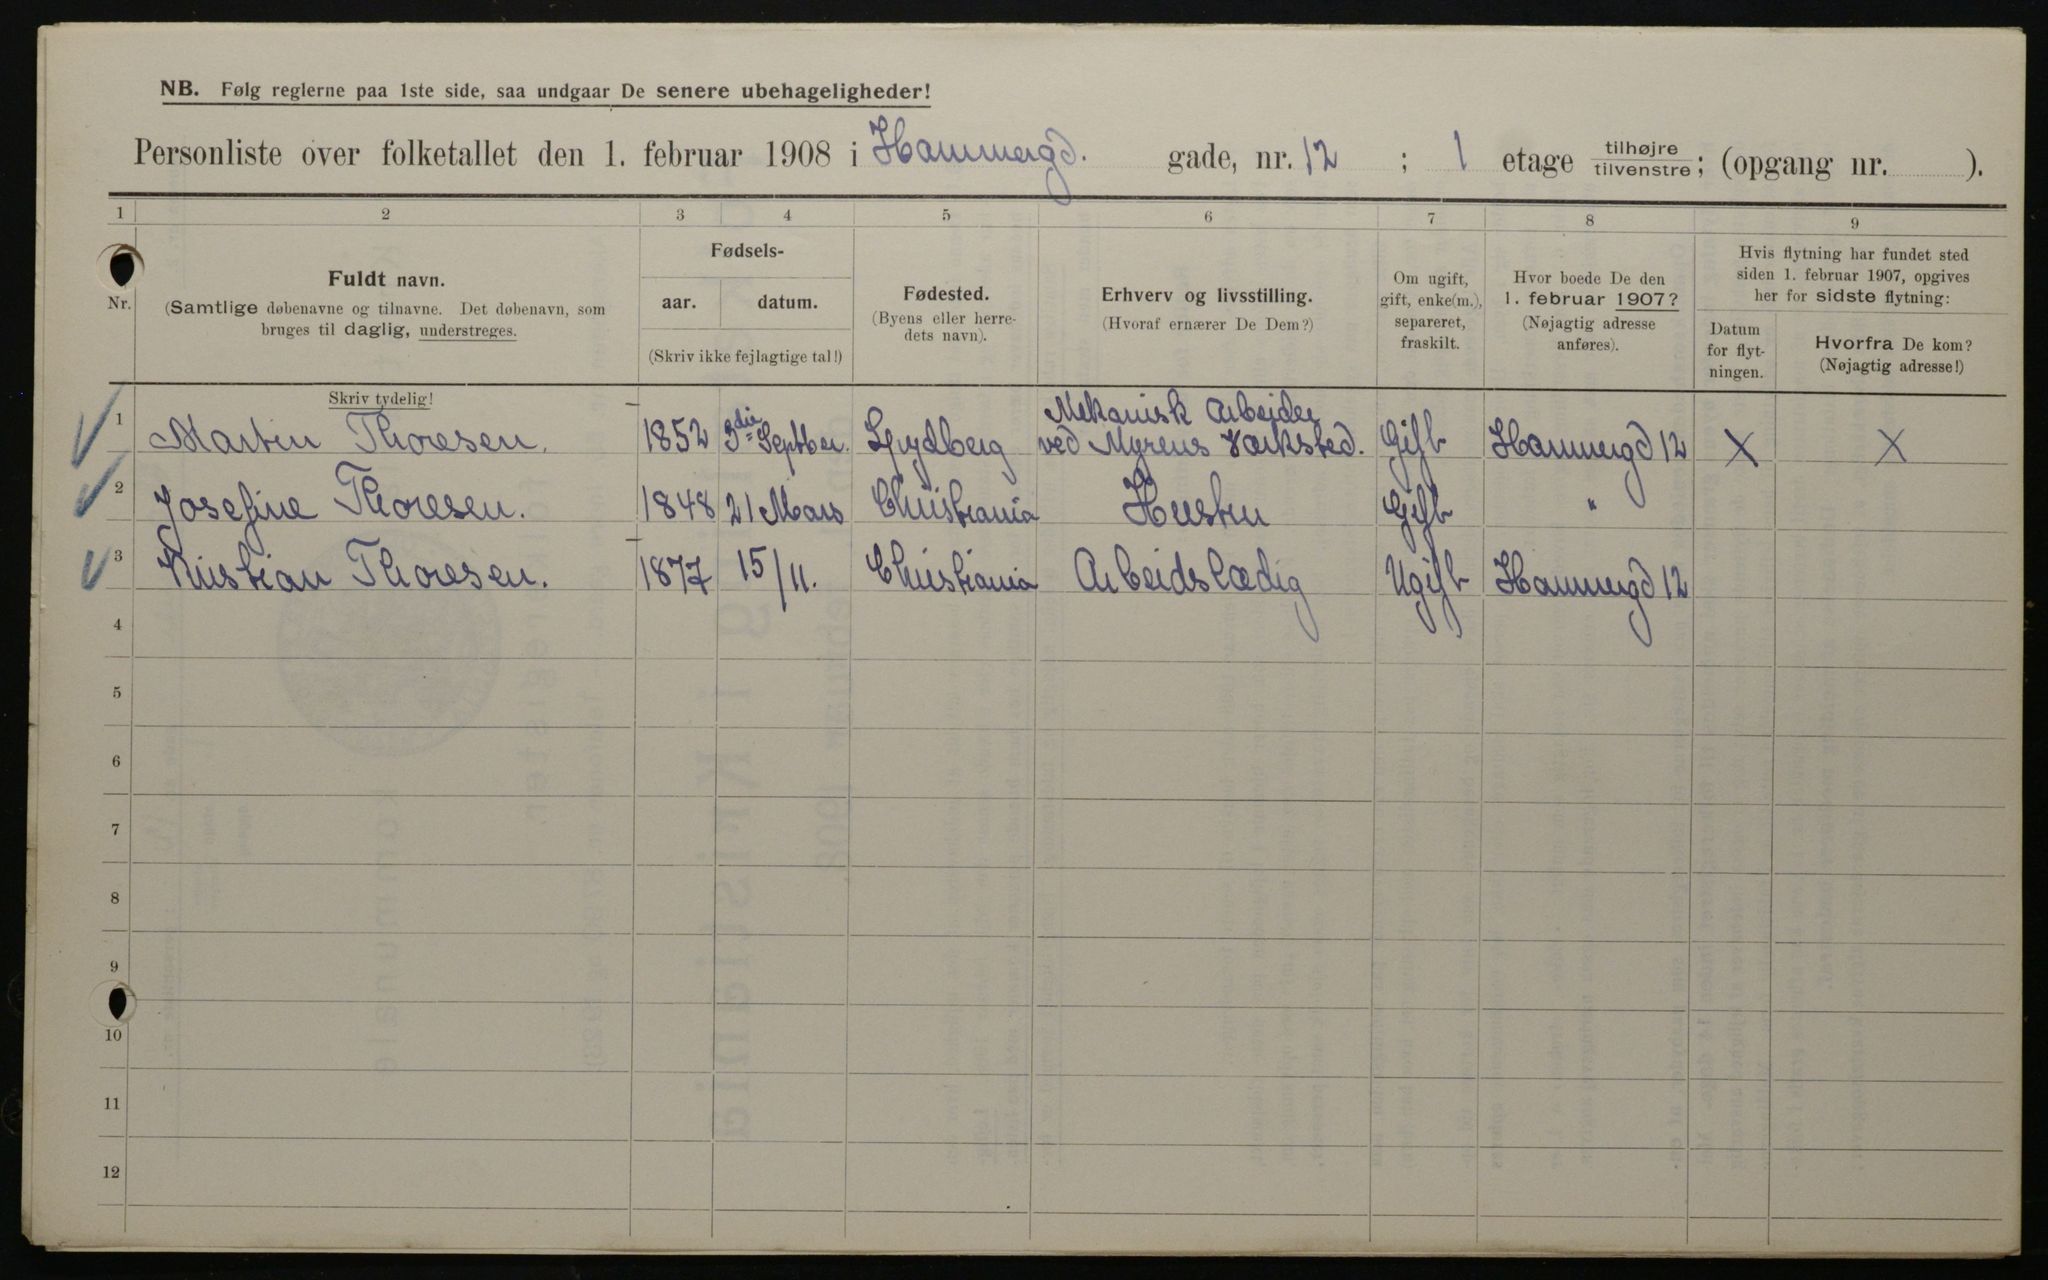 NB. Følg reglerne paa 1ste side, saa undgaar De senere ubehageligheder!
Personliste over folketallet den 1. februar 1908 i Hammergd. gade, nr. 12 ; 1 etage tilhøjre/tilvenstre; (opgang nr. ).
1 2 3 4 5 6 7 8 9
Nr.
Fuldt navn.
(Samtlige døbenavne og tilnavne. Det døbenavn, som
bruges til daglig, understreges.
Fødsels-
aar. datum.
(Skriv ikke fejlagtige tal!)
Fødested.
(Byens eller herre-
dets navn).
Erhverv og livsstilling.
(Hvoraf ernærer De Dem?)
Om ugift,
gift, enke(m.),
separeret,
fraskilt.
Hvor boede De den
1. februar 1907?
(Nøjagtig adresse
anføres).
Hvis flytning har fundet sted
siden 1. februar 1907, opgives
her for sidste flytning:
Datum
for flyt-
ningen.
Hvorfra De kom?
(Nøjagtig adresse!)
Skriv tydelig!
1 Martin Thoresen. 1852 3die Septber. Spydberg Mekanisk Arbeider
ved Myrens Værksted. Gift Hammergd 12 X X
2 Josefine Thoresen. 1848 21 Mars Christiania Hustru Gift "
3 Kristian Thoresen. 1877 15/11. Christiania Arbeidslædig Ugift Hammergd 12
4
5
6
7
8
9
10
11
12